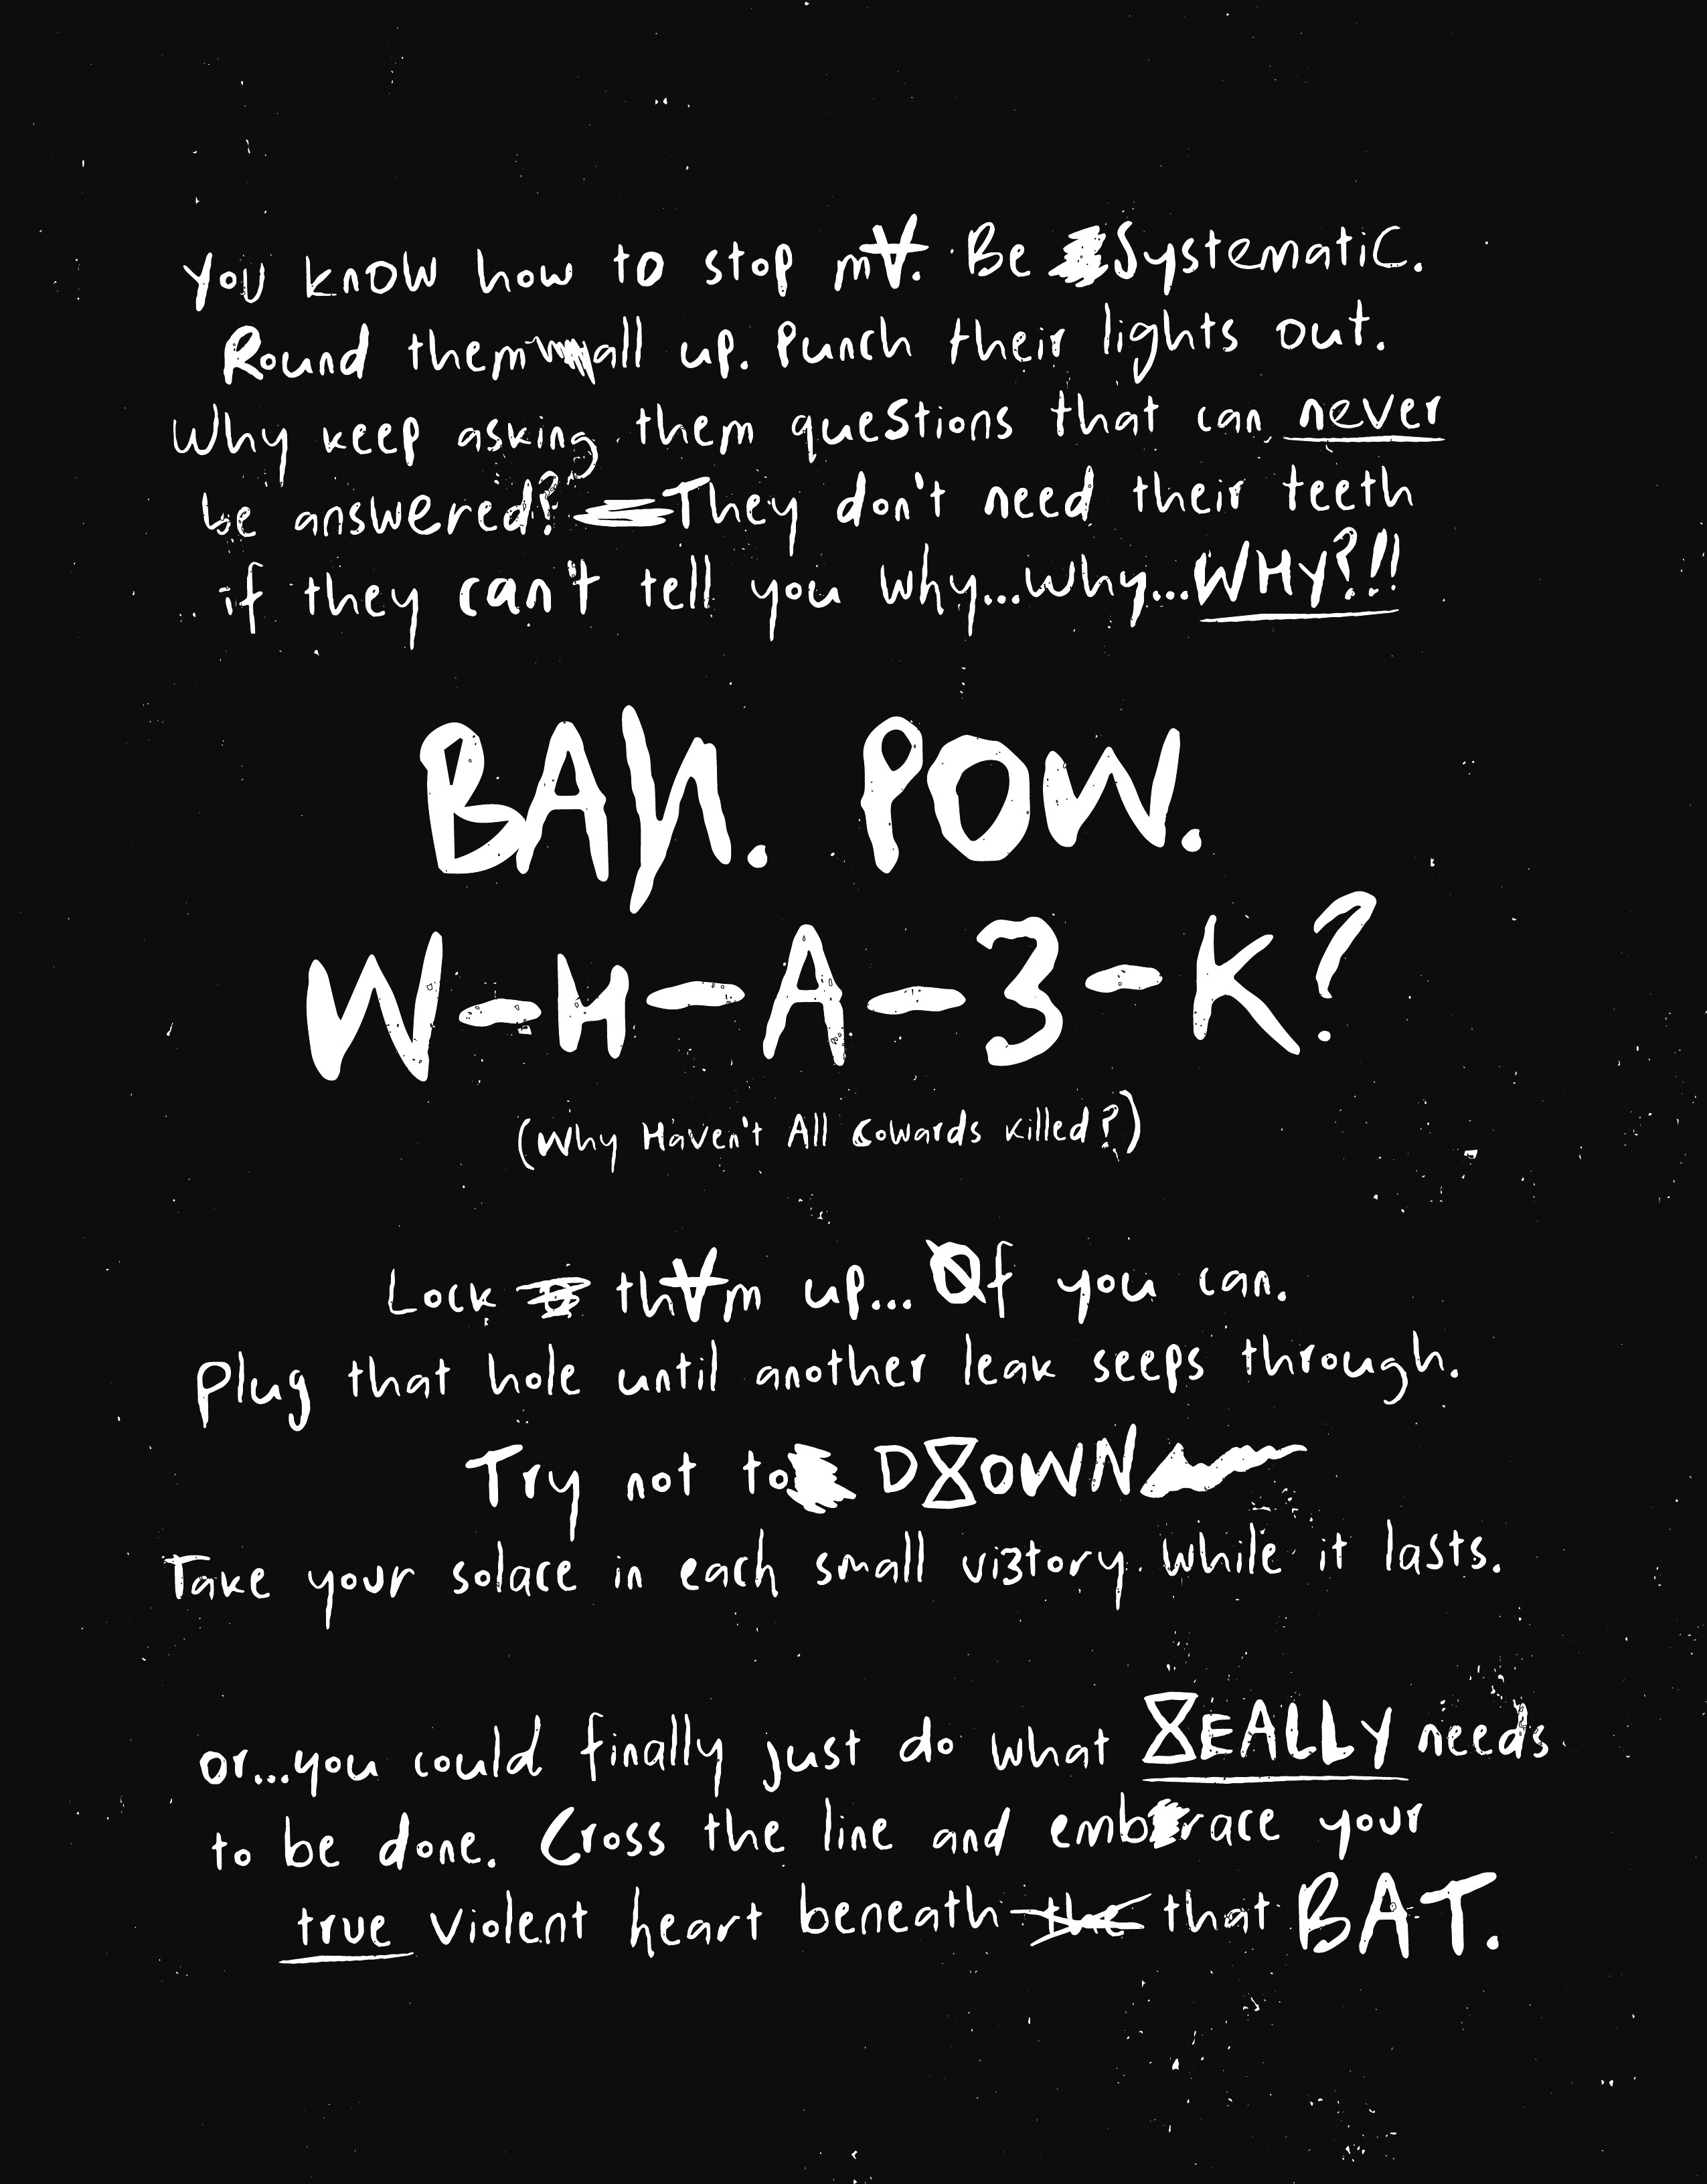 You know how to stop m∀. Be Systematic.
Round them all up. Punch their lights out.
Why keep asking them questions that can never
be answered? They don't need their teeth
if they can't tell you why...why...WHY?!!
BAꓠ. POW.
W-H-A-3-K?
(Why Haven't All Cowards Killed?)
Lock th∀m up... Øf you can.
Plug that hole until another leak seeps through.
Try not to D⧖OWN
Take your solace in each small vi3tory while it lasts.
or...you could finally just do what ⧖EALLY needs
to be done. Cross the line and embrace your
true violent heart beneath the that BAT.